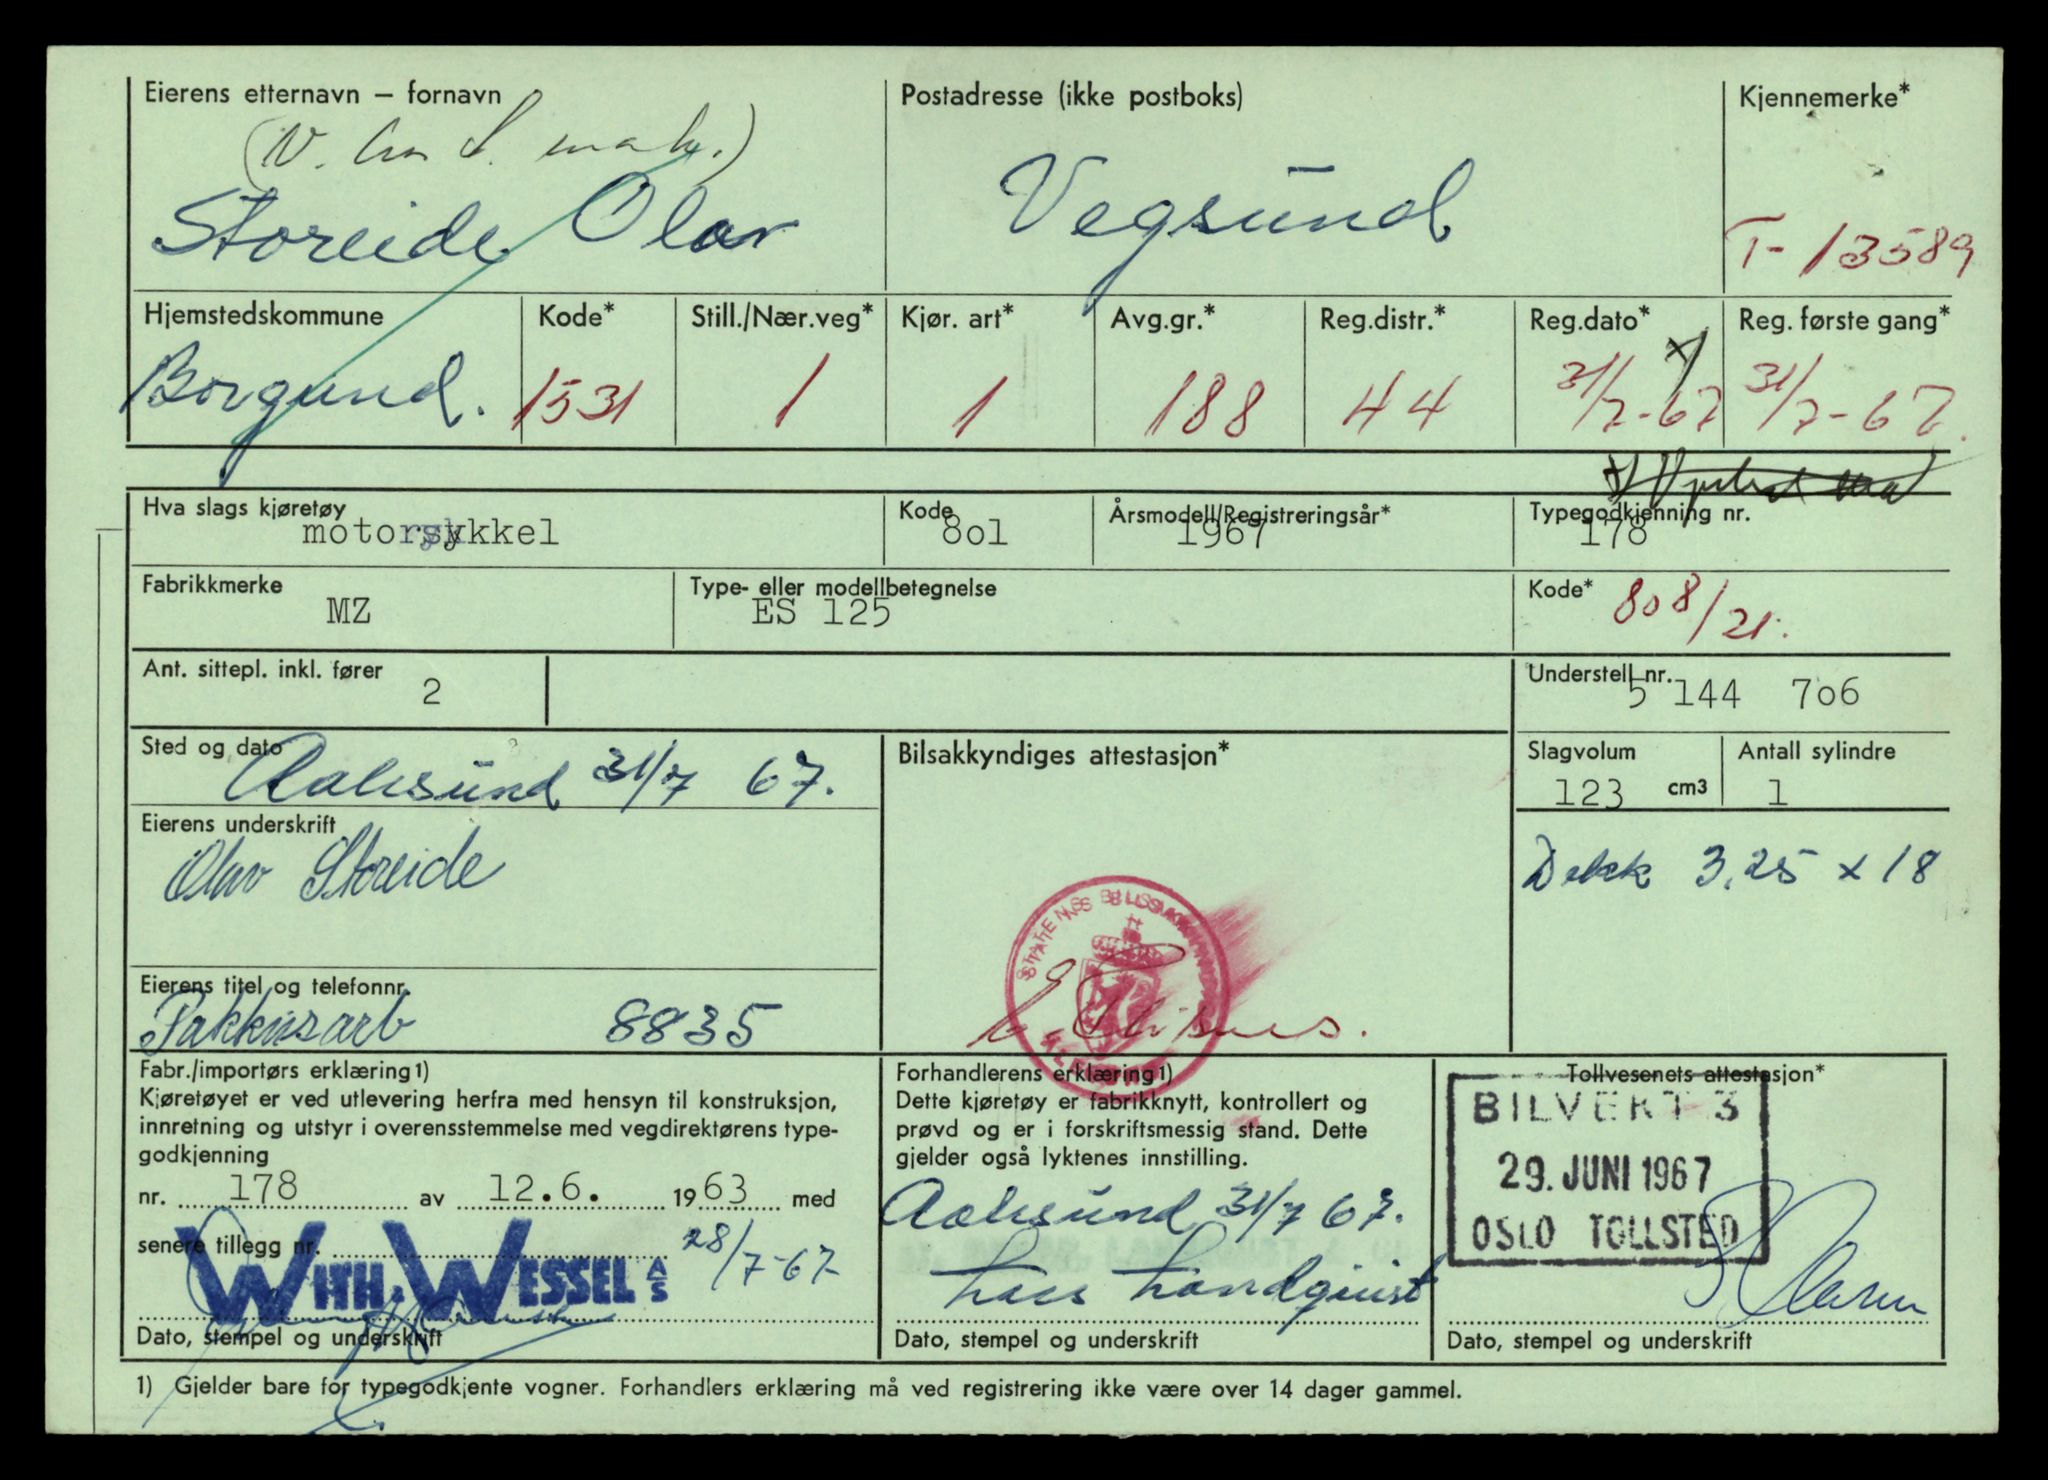 Eierens etternavn – fornavn
Storeide Olav
Postadresse (ikke postboks)
Vegsund
Kjennemerke*
T- 13589
Hjemstedskommune
Borgund.
Kode*
1531
Still./Nær.veg*
1
Kjør. art*
1
Avg.gr.*
188
Reg.distr.*
44
Reg.dato*
31/7-67
Reg. første gang*
31/7-67.
Hva slags kjøretøy
motorsykkel
Kode
8o1
Årsmodell/Registreringsår*
1967
Typegodkjenning nr.
178
Fabrikkmerke
MZ
Type- eller modellbetegnelse
ES 125
Kode*
808/21.
Ant. sittepl. inkl. fører
2
Understell nr.
5 144 7o6
Sted og dato
Aalesund 31/7 67.
Bilsakkyndiges attestasjon*
Slagvolum
123 cm3
Antall sylindre
1
Eierens underskrift
Olav Storeide
Dekk 3,25 x 18
STATENS BILSAKKYNDIGE
Eierens titel og telefonnr.
Pakkusarb 8835
Fabr./importørs erklæring1)
Kjøretøyet er ved utlevering herfra med hensyn til konstruksjon,
innretning og utstyr i overensstemmelse med vegdirektørens type-
godkjenning
nr. 178 av 12.6. 1963 med
senere tillegg nr.
28/7-67
WITH. WESSEL A/S
Dato, stempel og underskrift
Forhandlerens erklæring1)
Dette kjøretøy er fabrikknytt, kontrollert og
prøvd og er i forskriftsmessig stand. Dette
gjelder også lyktenes innstilling.
Aalesund 31/7 67.
Lars Landquist
Dato, stempel og underskrift
Tollvesenets attestasjon*
BILVERT 3
29. JUNI 1967
OSLO TOLLSTED
Dato, stempel og underskrift
1) Gjelder bare for typegodkjente vogner. Forhandlers erklæring må ved registrering ikke være over 14 dager gammel.